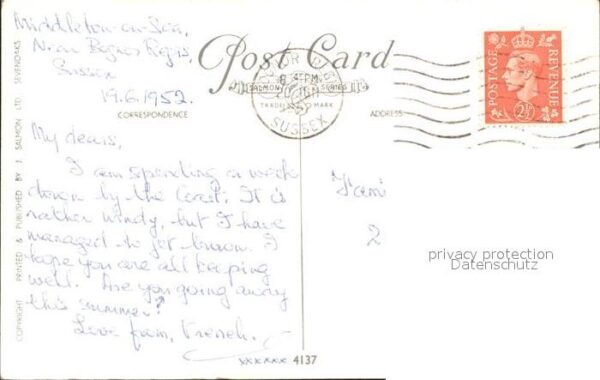 Middleton-on-Sea,
Near Bognor Regis,
Sussex
19.6.1952.
Post Card
BOGNOR REGIS
SUSSEX
SALMON SERIES
TRADE MARK
CORRESPONDENCE
ADDRESS
POSTAGE
REVENUE
2½D
My dears,
I am spending a week
down by the Coast. It is
rather windy, but I have
managed to get brown. I
hope you are all keeping
well. Are you going away
this summer?
Love from,
xxxxxx
4137
Fami
2
privacy protection
Datenschutz
COPYRIGHT PRINTED & PUBLISHED BY J. SALMON LTD. SEVENOAKS